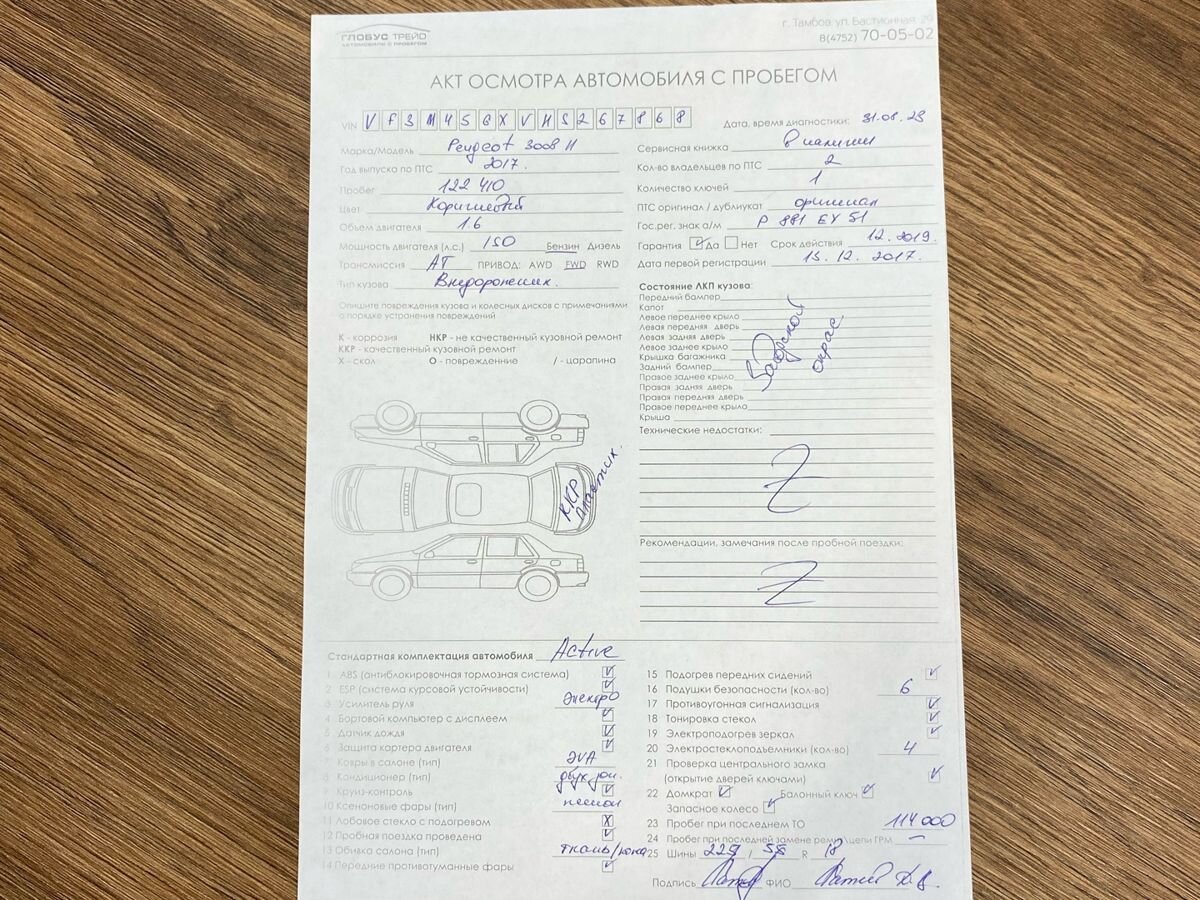 ГЛОБУС ТРЕЙД
АВТОМОБИЛИ С ПРОБЕГОМ
г. Тамбов ул. Бастионная, 29
8(4752) 70-05-02
АКТ ОСМОТРА АВТОМОБИЛЯ С ПРОБЕГОМ
VIN V F 3 M 4 5 G X V H S 2 6 7 8 6 8
Марка/Модель Peugeot 3008 II
Год выпуска по ПТС 2017.
Пробег 122 410
Цвет Коричневый
Объем двигателя 1.6
Мощность двигателя (л.с.) 150 Бензин Дизель
Трансмиссия АТ ПРИВОД: AWD FWD RWD
Тип кузова Внедорожник.
Опишите повреждения кузова и колесных дисков с примечаниями
о порядке устранения повреждений
К - коррозия НКР - не качественный кузовной ремонт
ККР - качественный кузовной ремонт
Х - скол О - повреждение / - царапина
ККР
пластик.
Дата, время диагностики: 31.08.23
Сервисная книжка В наличии
Кол-во владельцев по ПТС 2
Количество ключей 1
ПТС оригинал / дубликат оригинал
Гос.рег. знак а/м Р 881 ЕУ 51
Гарантия Да Нет Срок действия 12.2019.
Дата первой регистрации 15.12.2017.
Состояние ЛКП кузова:
Передний бампер
Капот
Левое переднее крыло
Левая передняя дверь
Левая задняя дверь
Левое заднее крыло
Крышка багажника
Задний бампер
Правое заднее крыло
Правая задняя дверь
Правая передняя дверь
Правое переднее крыло
Крыша
Заводской
окрас.
Технические недостатки:
Z
Рекомендации, замечания после пробной поездки:
Z
Стандартная комплектация автомобиля Active
1 ABS (антиблокировочная тормозная система)
2 ESP (система курсовой устойчивости)
3 Усилитель руля электро
4 Бортовой компьютер с дисплеем
5 Датчик дождя
6 Защита картера двигателя
7 Ковры в салоне (тип) ЭVA
8 Кондиционер (тип) двух зон.
9 Круиз-контроль
10 Ксеноновые фары (тип)
11 Лобовое стекло с подогревом X
12 Пробная поездка проведена
13 Обивка салона (тип) ткань/кожа
14 Передние противотуманные фары
15 Подогрев передних сидений
16 Подушки безопасности (кол-во) 6
17 Противоугонная сигнализация
18 Тонировка стекол
19 Электроподогрев зеркал
20 Электростеклоподъемники (кол-во) 4
21 Проверка центрального замка
(открытие дверей ключами)
22 Домкрат Балонный ключ
Запасное колесо
23 Пробег при последнем ТО 114 000
24 Пробег при последней замене ремня\цепи ГРМ —
25 Шины 225 / 55 R 18
Подпись ФИО